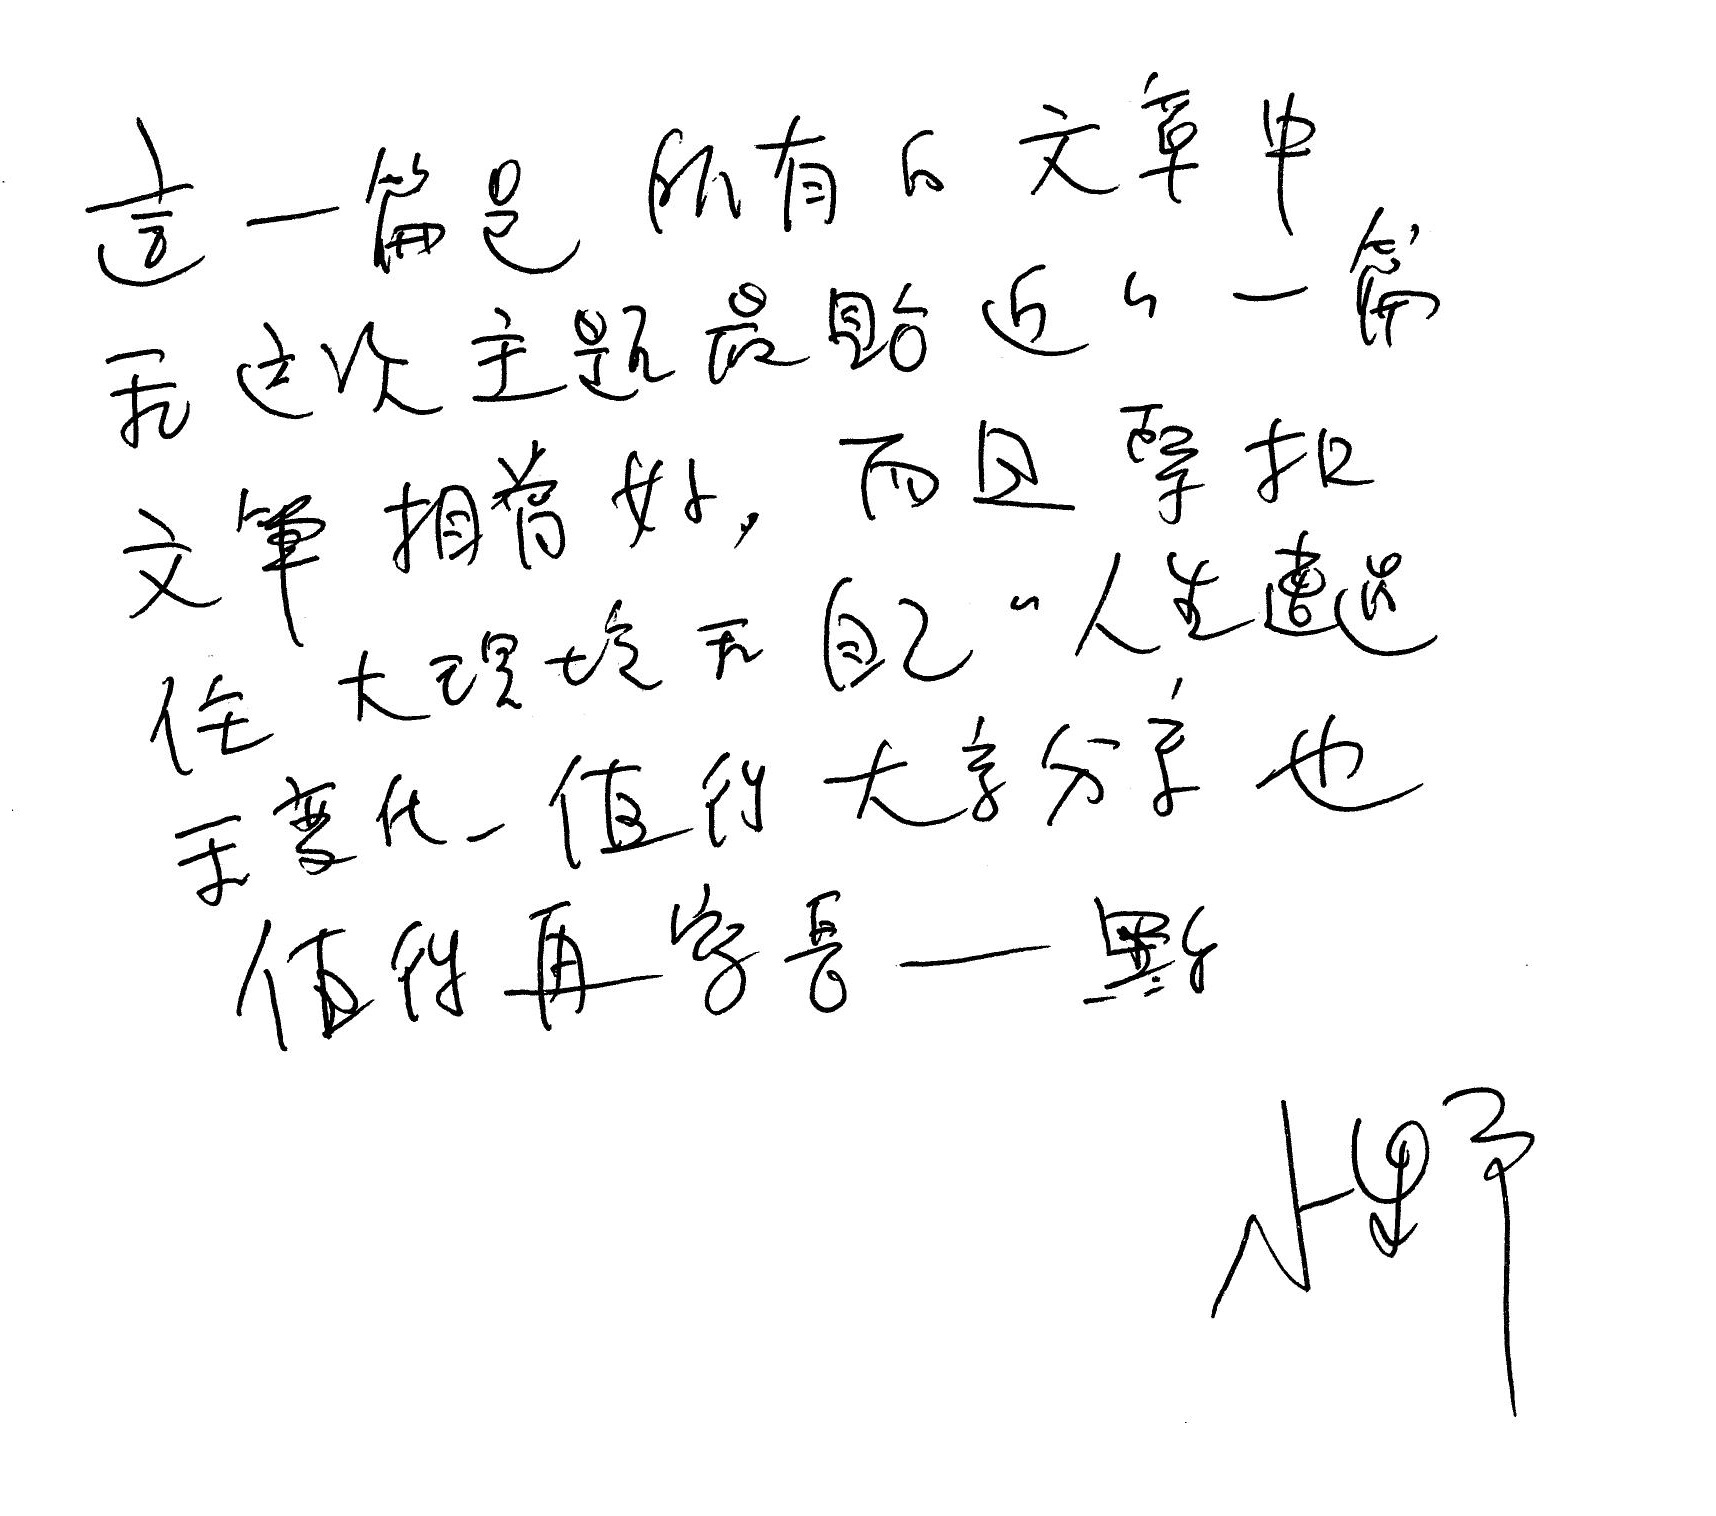 這一篇是所有的文章中
和这次主題最貼近的一篇
文筆相當好，而且掌握
住大環境和自己的人生遭遇
和變化，值得大家分享也
值得再寫長一點
小野